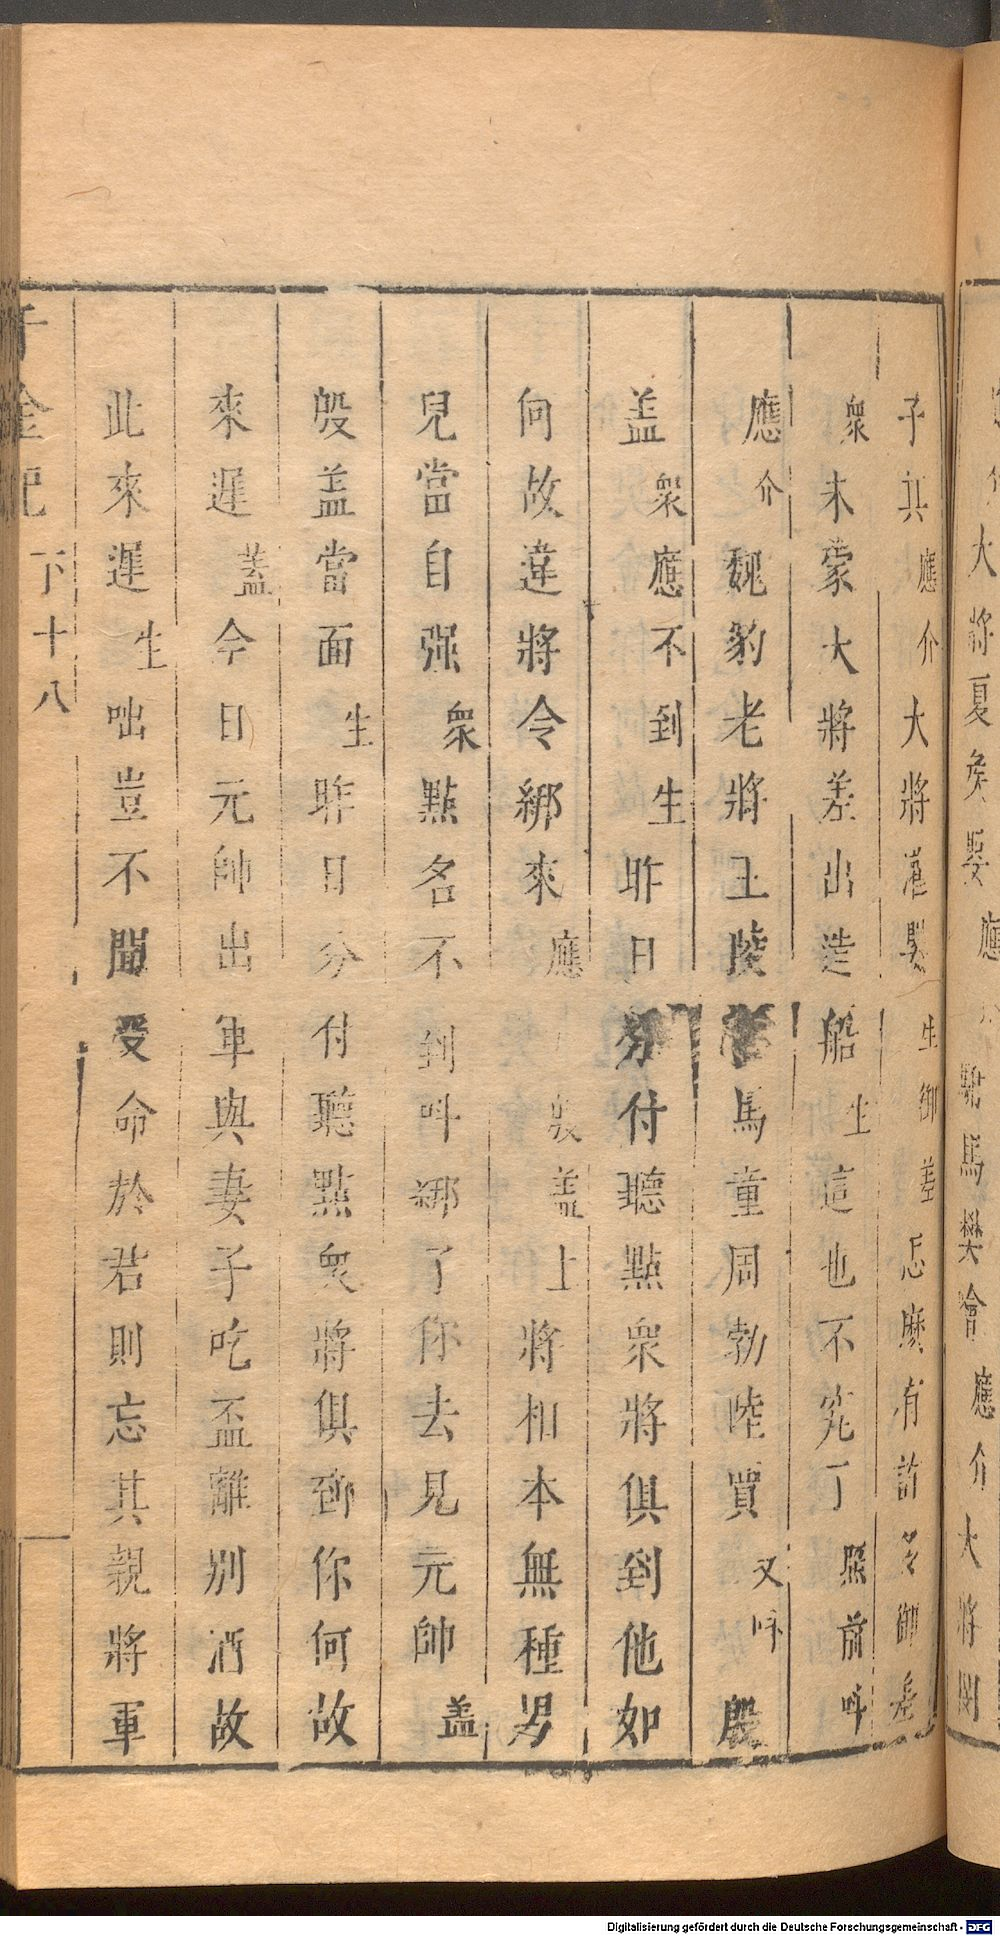 子其應介大將灌嬰生御差怎麽有許多御差
衆未蒙大將差出造船生這也不究了照前呌
應介魏豹老將王陵馬童周勃陸賈又呌殷
盖衆應不到生昨日分付聽點衆將俱到他如
何故違將令綁來應盖上將相本無種男
兒當自强衆點名不到呌綁了你去見元帥盖
殷盖當面生昨日分付聽點衆將俱到你何故
來遲蓋今日元帥出軍與妻子吃盃離別酒故
此來遲生咄豈不聞受命於君則忘其親將軍
千金記 下十八
大將夏矦嬰應馬樊噲應介大將
Digitalisierung gefördert durch die Deutsche Forschungsgemeinschaft - DFG